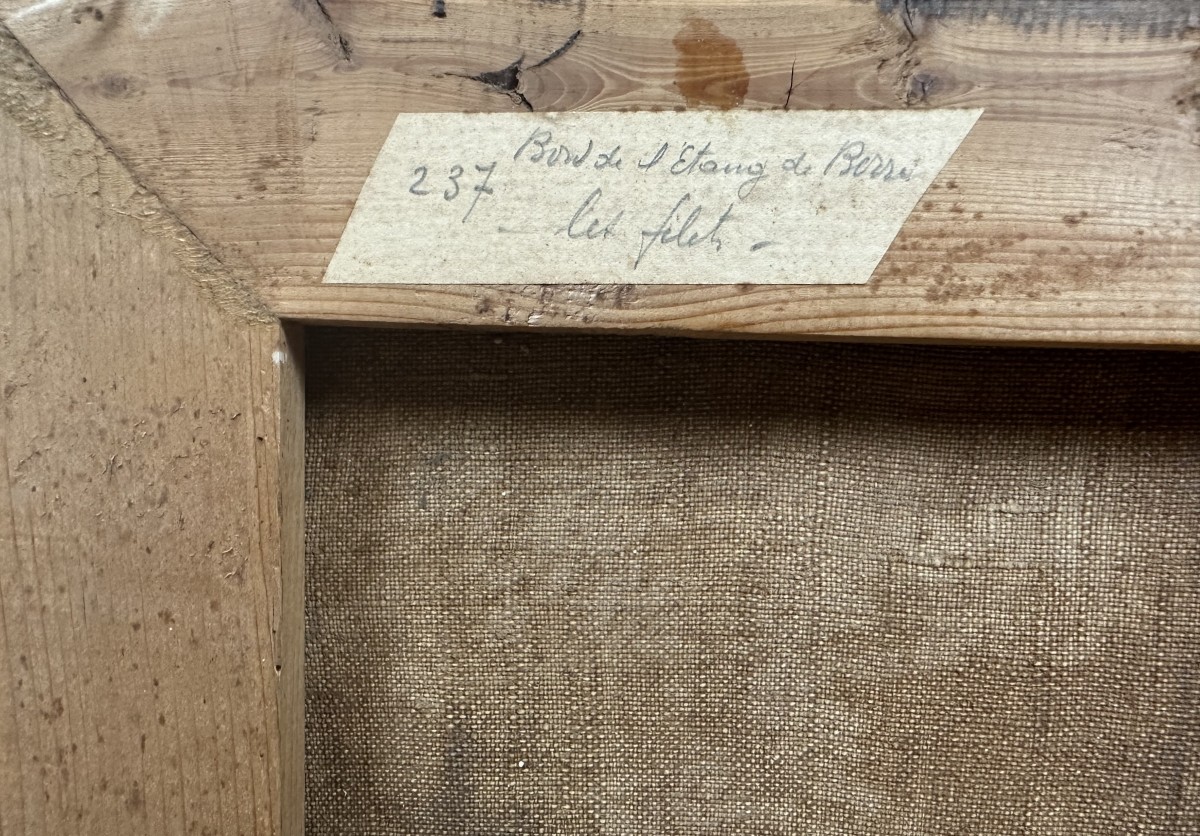 237 Bord de l'Etang de Berre
- les filets -